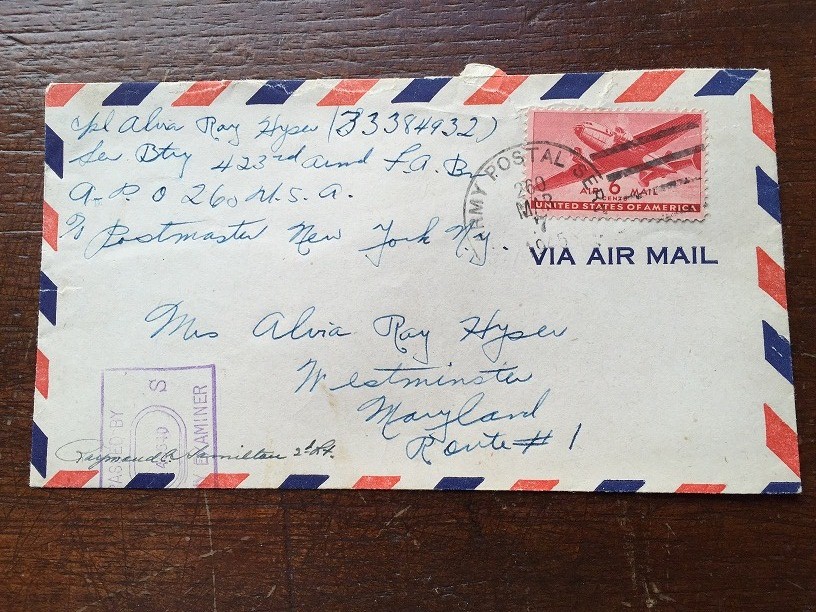 Cpl Alvia Ray Hyser (33384932)
Ser. Btry 423rd armd F. A. Bn
A.P.O 260 U.S.A.
c/o Postmaster New York N.Y.
ARMY POSTAL SER
260
MAR
1945
6
CENTS
MAIL
UNITED STATES OF AMERICA
VIA AIR MAIL
Mrs Alvia Ray Hyser
Westminster
Maryland
Route # 1
PASSED BY
S
EXAMINER
Raymond A Hamilton 2d Lt.